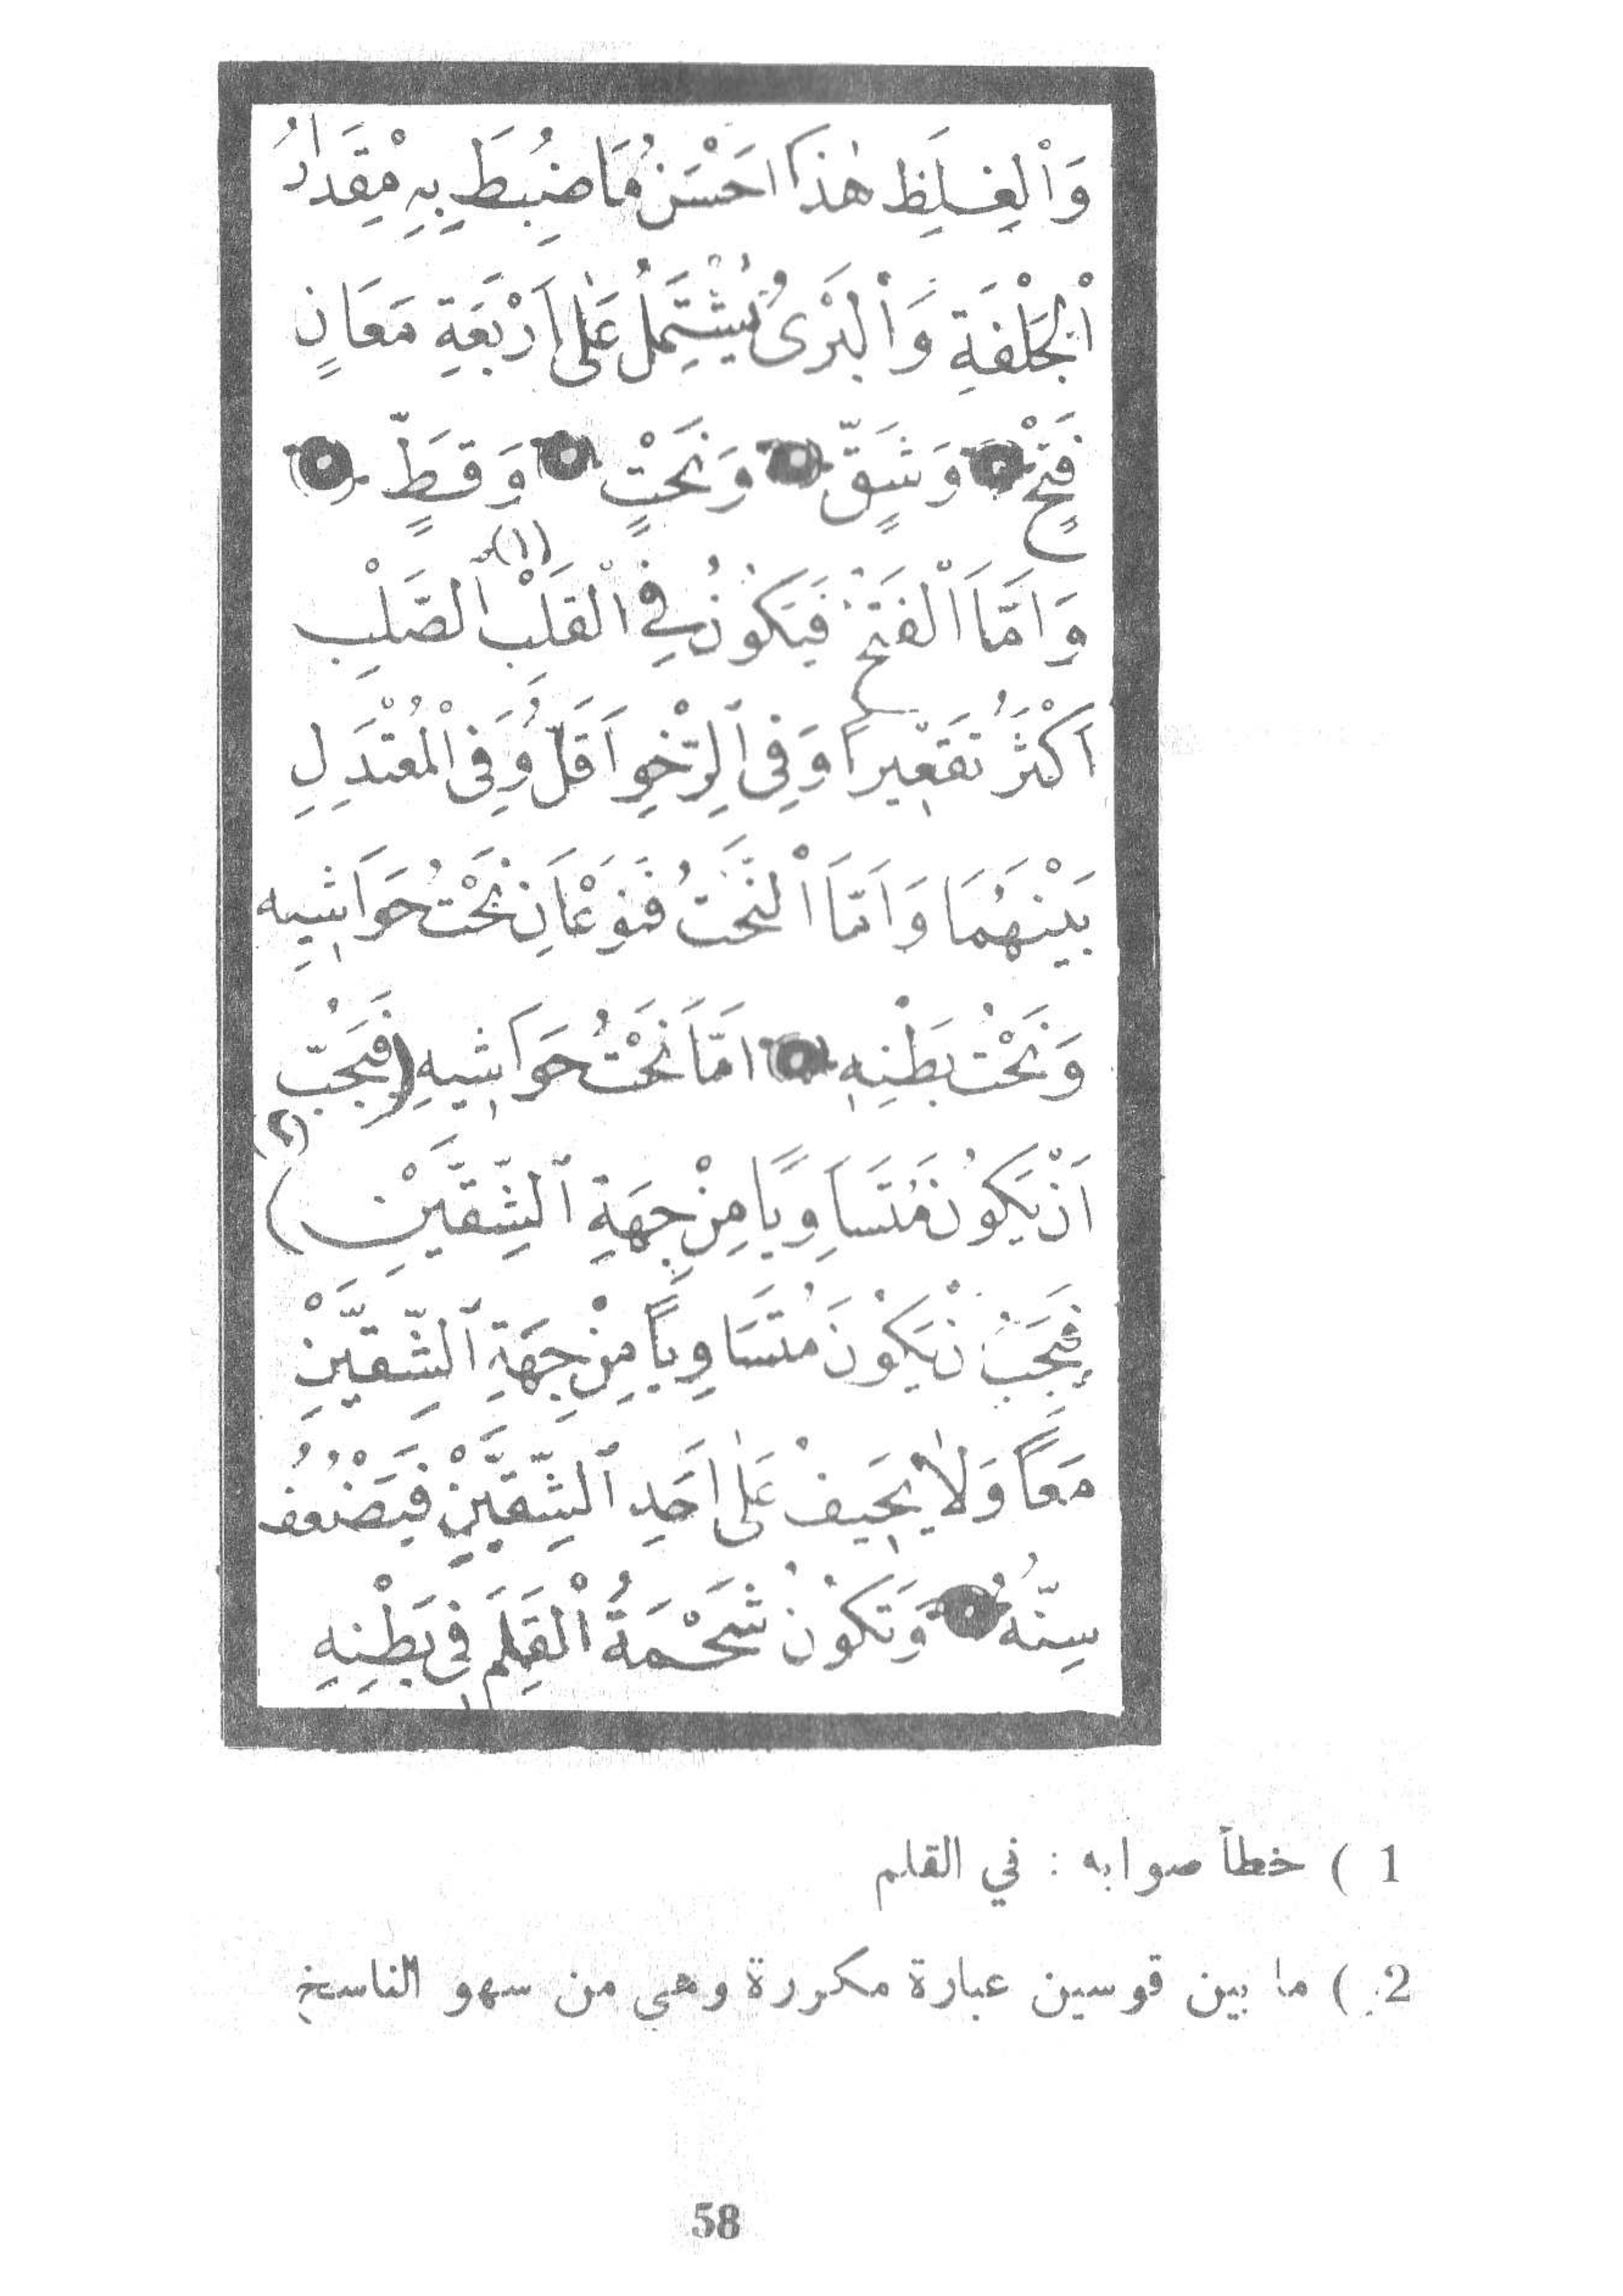 وَالْغِلَظِ هٰذَا اَحْسَنُ مَا ضُبِطَ بِهِ مِقْدَارُ
الْجَلْفَةِ وَالْبَرْىُ يَشْتَمِلُ عَلٰى اَرْبَعَةِ مَعَانٍ
فَتْحٍ وَشَقٍّ وَنَحْتٍ وَقَطٍّ
وَاَمَّا الْفَتْحُ فَيَكُونُ فِى الْقَلْبِ (١) الصَّلْبِ
اَكْثَرُ تَقْعِيرًا وَفِى الرِّخْوِ اَقَلُّ وَفِى الْمُعْتَدِلِ
بَيْنَهُمَا وَاَمَّا النَّحْتُ فَنَوْعَانِ نَحْتُ حَوَاشِيهِ
وَنَحْتُ بَطْنِهِ اَمَّا نَحْتُ حَوَاشِيهِ (فَيَجِبُ
اَنْ يَكُونَ مُتَسَاوِيًا مِنْ جِهَةِ الشِّقَّيْنِ) (٢)
فَيَجِبُ نْ يَكُونَ مُتَسَاوِيًا مِنْ جِهَةِ الشِّقَّيْنِ
مَعًا وَلَا يَحِيفُ عَلٰى اَحَدِ الشِّقَّيْنِ فَيَضْعُفُ
سِنُّهُ وَتَكُونُ شَحْمَةُ الْقَلَمِ فِى بَطْنِهِ
1 ) خطأ صوابه : في القلم
2 ) ما بين قوسين عبارة مكررة وهي من سهو الناسخ
58